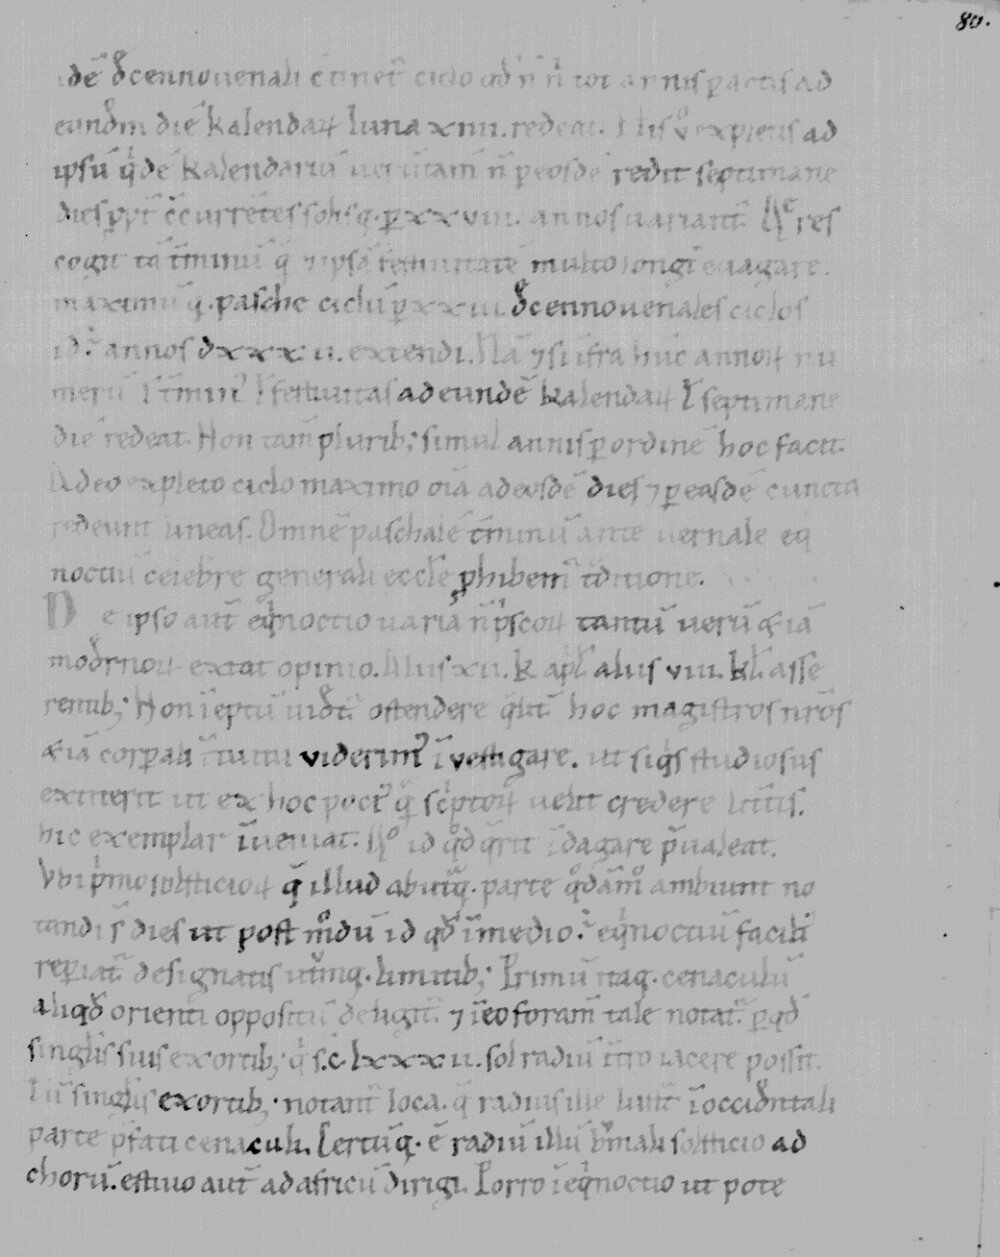 80.
idē dˀcennouenali ctinet̄ ciclo qđ n̄ n̄ tot annis ꝑactis ad
eundˀm diē kalendaꝝ luna xiiii. redeat. His v̊ expletis ad
ipsū qͥdē kalendariū uerūtam̄ n̄ ꝑ eosdē redit septimane
dies ꝓpt̄ ccurrētes solisq. ꝑ xxviii. annos uariant̄. Q̄ res
cogit tā t̄minū q̄ ⁊ ipsā festiuitatē multo longi euagare.
maximū q. pasche ciclū ꝑ xxviii. dˀcennouenales ciclos
id.̄ annos dxxxii. extendi. Nā ⁊ si īfra hūc annoꝝ nu
merū ł t̄minꝰ ł festiuitas ad eundē kalendaꝝ ł septimane
diē redeat. Non tam̄ pluribꝫ simul annis ꝑ ordinē hoc facit.
Adeo expleto ciclo maximo oīa ad eosdē dies ⁊ ꝑ easdē cuncta
redeunt lineas. Omnē paschalē t̄minū ante uernale eq
noctiū celebˀre generali eccl̄e ꝓhibem̄ t̄ditione.
De ipso aut̄ eqͥnoctio uaria n̄ pͥscoꝝ tantū uerū & iā
modˀrnoꝝ extat opinio. Aliis xii. k apl̄ aliis viii. kł asse
rentibꝫ Non īeptū uidˀt̄ ostendere qͣlit̄ hoc magistros nr̄os
& iā corꝑali ītuitu viderimꝰ īvestigare. ut siqͥs studiosus
extiterit ut ex hoc pociꝰ qͣ̄ scͥptoꝝ uelit credere litt̄is.
hic exemplar īueniat. Q̊ id qđ qͣ̄rit īdagare p̄ualeat.
Vbi pͥmo solsticioꝝ q̄ illud ab utͣq. parte qͦdāmͦ ambiunt no
tandi s̄ dies ut post mͦdū id qđ ī medio.̄ eqͥnoctiū faciliꝰ
reꝑiat̄ designatis utͥmq. limitibꝫ Primū itaq. cenaculū
aliqđ orienti oppositū deligit̄. ⁊ ī eo foram̄ tale notat̄. ꝑ qđ
singl̄is suis exortibꝫ qͥ s̄. clxxxii. sol radiū īt̄ro iacere possit.
Tū singl̄is exortibꝫ notant̄ loca. q̄ radius ille lūit̄ ī occidˀntali
parte p̄fati cenaculi. Certūq. ē radiū illū bͥmali solsticio ad
chorū. estiuo aut̄ ad africū dirigi. Porro ī eqͥnoctio ut pote